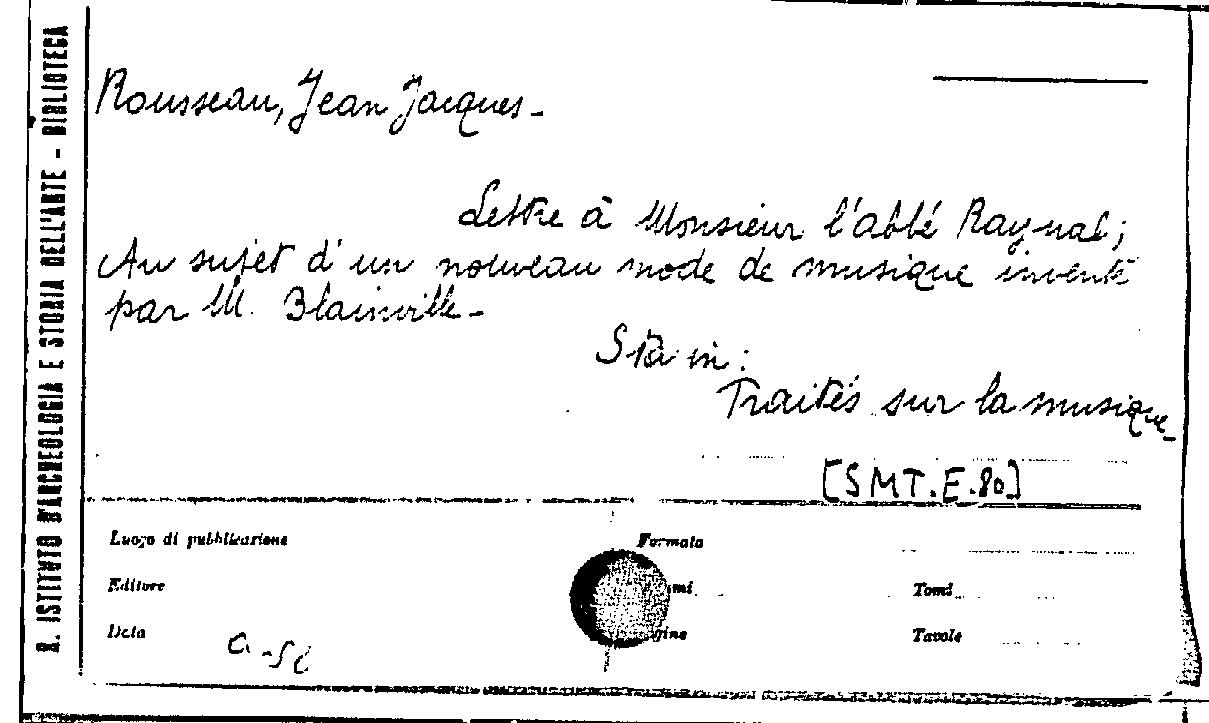 R. ISTITUTO D'ARCHEOLOGIA E STORIA DELL'ARTE - BIBLIOTECA
Rousseau, Jean Jacques.-
Lettre à Monsieur l'abbé Raynal;
Au sujet d'un nouveau mode de musique inventé
par M. Blainville.-
Sta in:
Traités sur la musique.-
[SMT.E.80]
Luogo di pubblicazione
Formato
Editore
Tomi
Data
Tavole